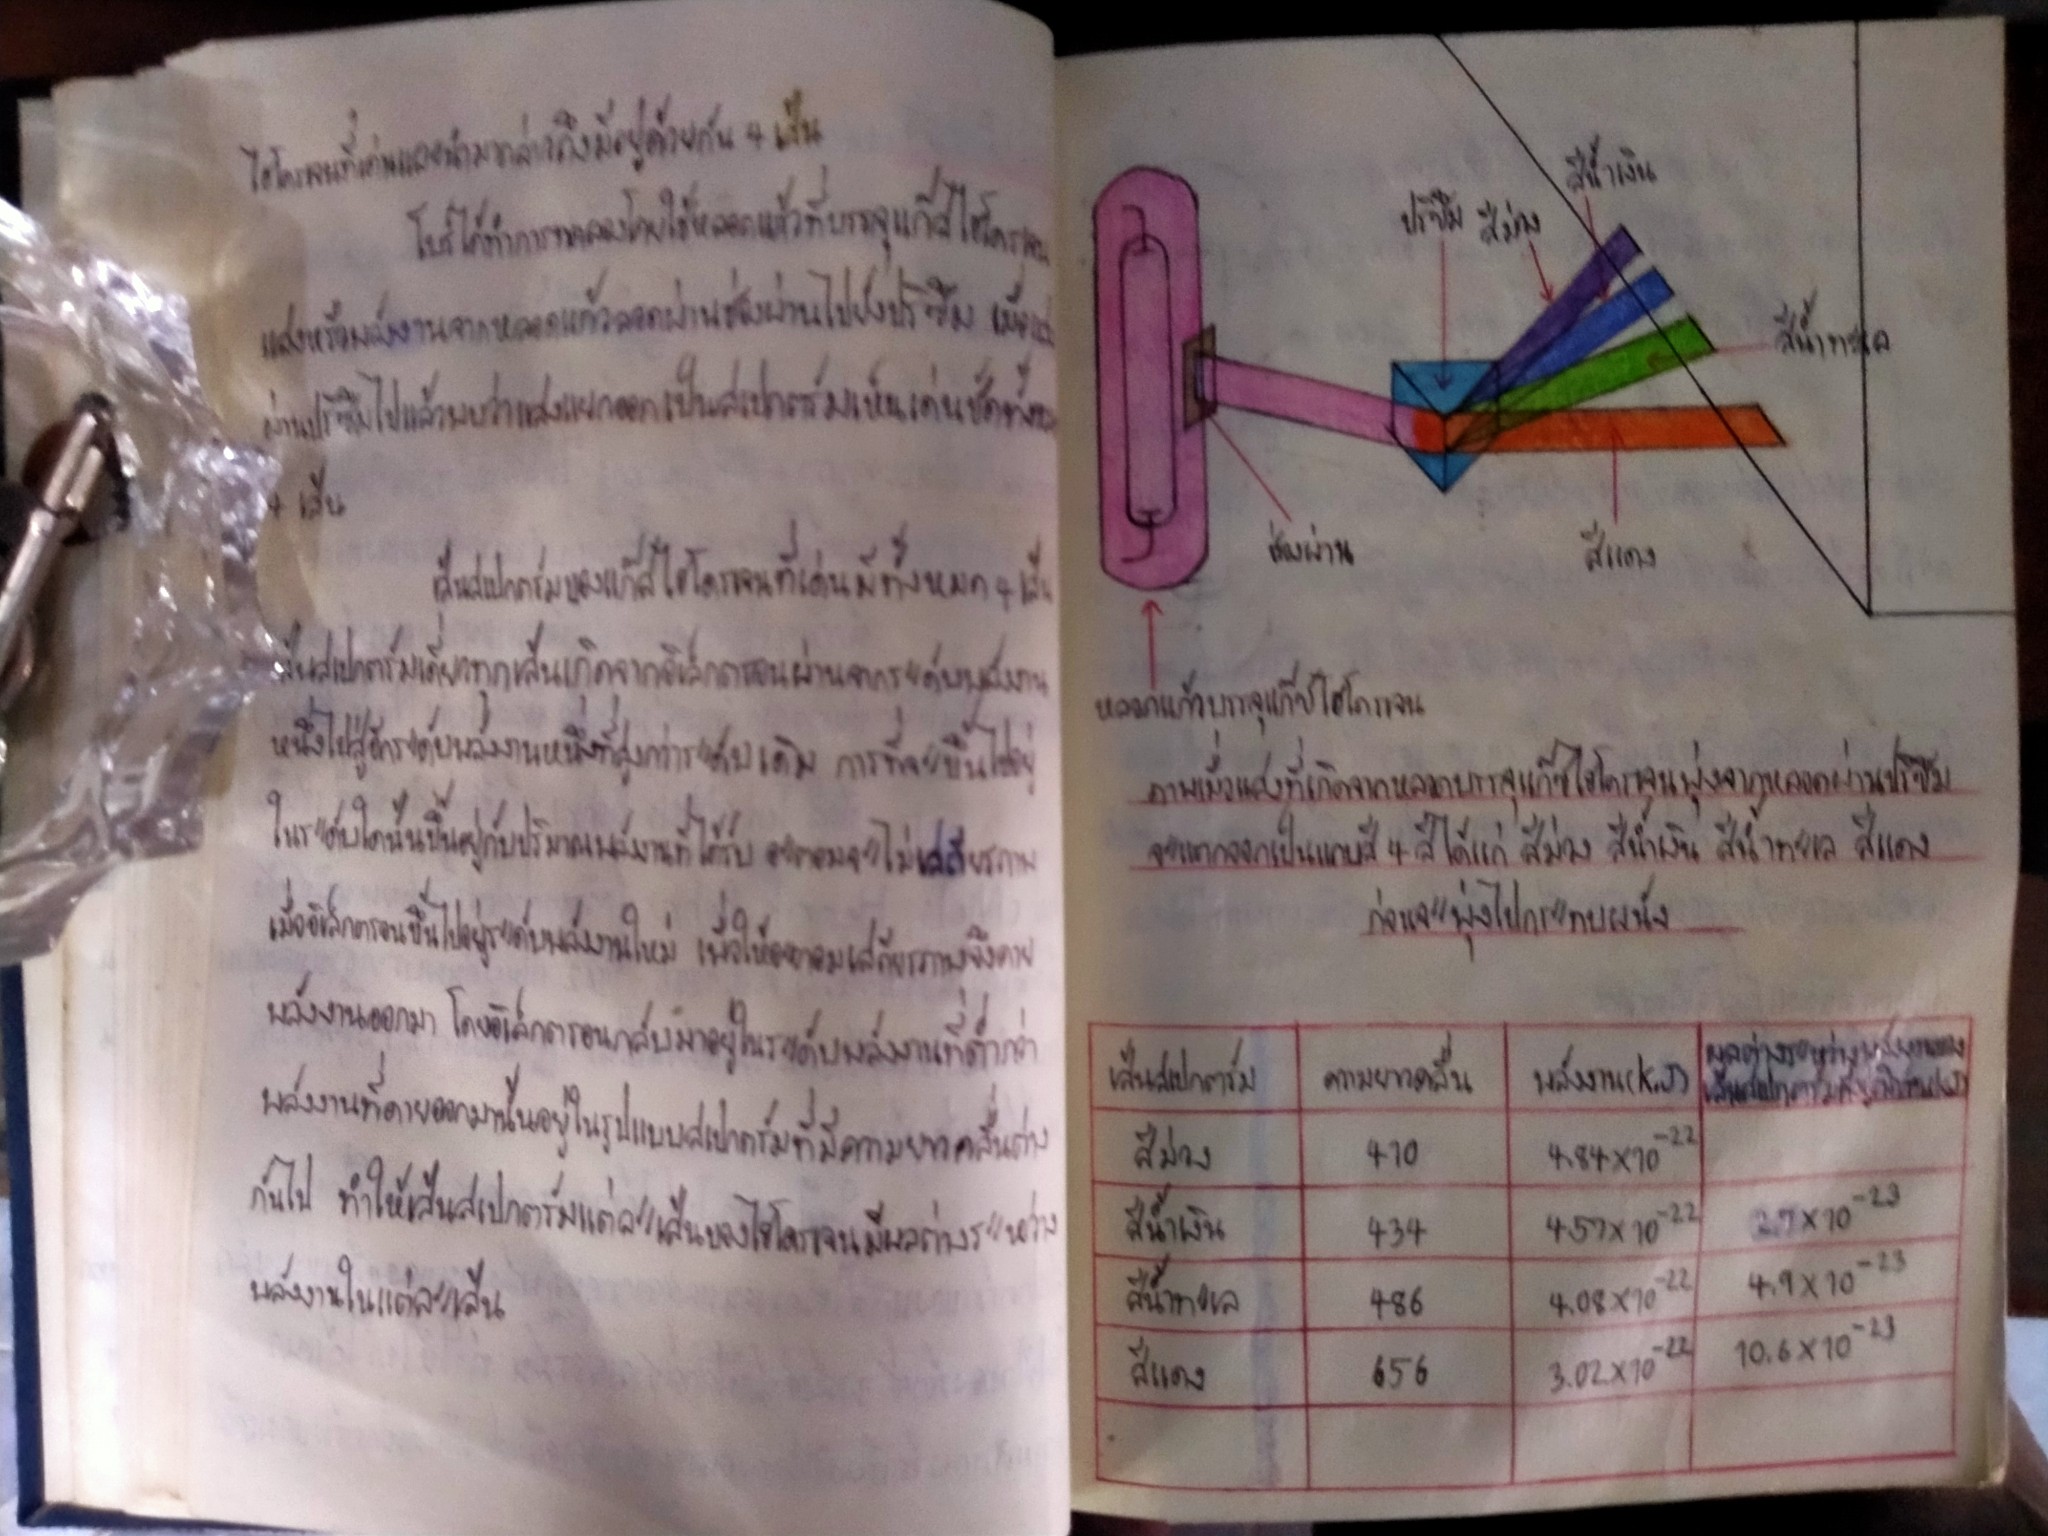 ไฮโดรเจนที่เด่นและนำมากล่าวถึงมีอยู่ด้วยกัน 4 เส้น
โบร์ได้ทำการทดลองโดยใช้หลอดแก้วที่บรรจุแก๊สไฮโดรเจน
แสงหรือพลังงานจากหลอดแก้วลอดผ่านช่องผ่านไปยังปริซึม เมื่อ
ผ่านปริซึมไปแล้วพบว่าแสงแยกออกเป็นสเปกตรัมเห็นเด่นชัดทั้งหมด
4 เส้น
เส้นสเปกตรัมของแก๊สไฮโดรเจนที่เด่นมีทั้งหมด 4 เส้น
เส้นสเปกตรัมเดี่ยวทุกเส้นเกิดจากอิเล็กตรอนผ่านจากระดับพลังงาน
หนึ่งไปสู่อีกระดับพลังงานหนึ่งที่สูงกว่าระดับเดิม การที่จะขึ้นไปอยู่
ในระดับใดนั้นขึ้นอยู่กับปริมาณพลังงานที่ได้รับ อะตอมจะไม่เสถียรภาพ
เมื่ออิเล็กตรอนขึ้นไปอยู่ระดับพลังงานใหม่ เพื่อให้อะตอมเสถียรภาพจึงคาย
พลังงานออกมา โดยอิเล็กตรอนกลับมาอยู่ในระดับพลังงานที่ต่ำกว่า
พลังงานที่คายออกมานั้นอยู่ในรูปแบบสเปกตรัมที่มีความยาวคลื่นต่าง
กันไป ทำให้เส้นสเปกตรัมแต่ละเส้นของไฮโดรเจนมีผลต่างระหว่าง
พลังงานในแต่ละเส้น
สีน้ำเงิน
ปริซึม สีม่วง
สีน้ำทะเล
ช่องผ่าน
สีแดง
หลอดแก้วบรรจุแก๊ซไฮโดรเจน
ภาพเมื่อแสงที่เกิดจากหลอดบรรจุแก๊ซไฮโดรเจนพุ่งจากหลอดผ่านปริซึม
จะแตกออกเป็นแถบสี 4 สีได้แก่ สีม่วง สีน้ำเงิน สีน้ำทะเล สีแดง
ก่อนจะพุ่งไปกระทบผนัง
เส้นสเปกตรัม ความยาวคลื่น พลังงาน(kJ) ผลต่างระหว่างพลังงานของ
เส้นสเปกตรัมที่อยู่ติดกัน(kJ)
สีม่วง 410 4.84×10⁻²²
สีน้ำเงิน 434 4.57×10⁻²² 2.7×10⁻²³
สีน้ำทะเล 486 4.08×10⁻²² 4.9×10⁻²³
สีแดง 656 3.02×10⁻²² 10.6×10⁻²³